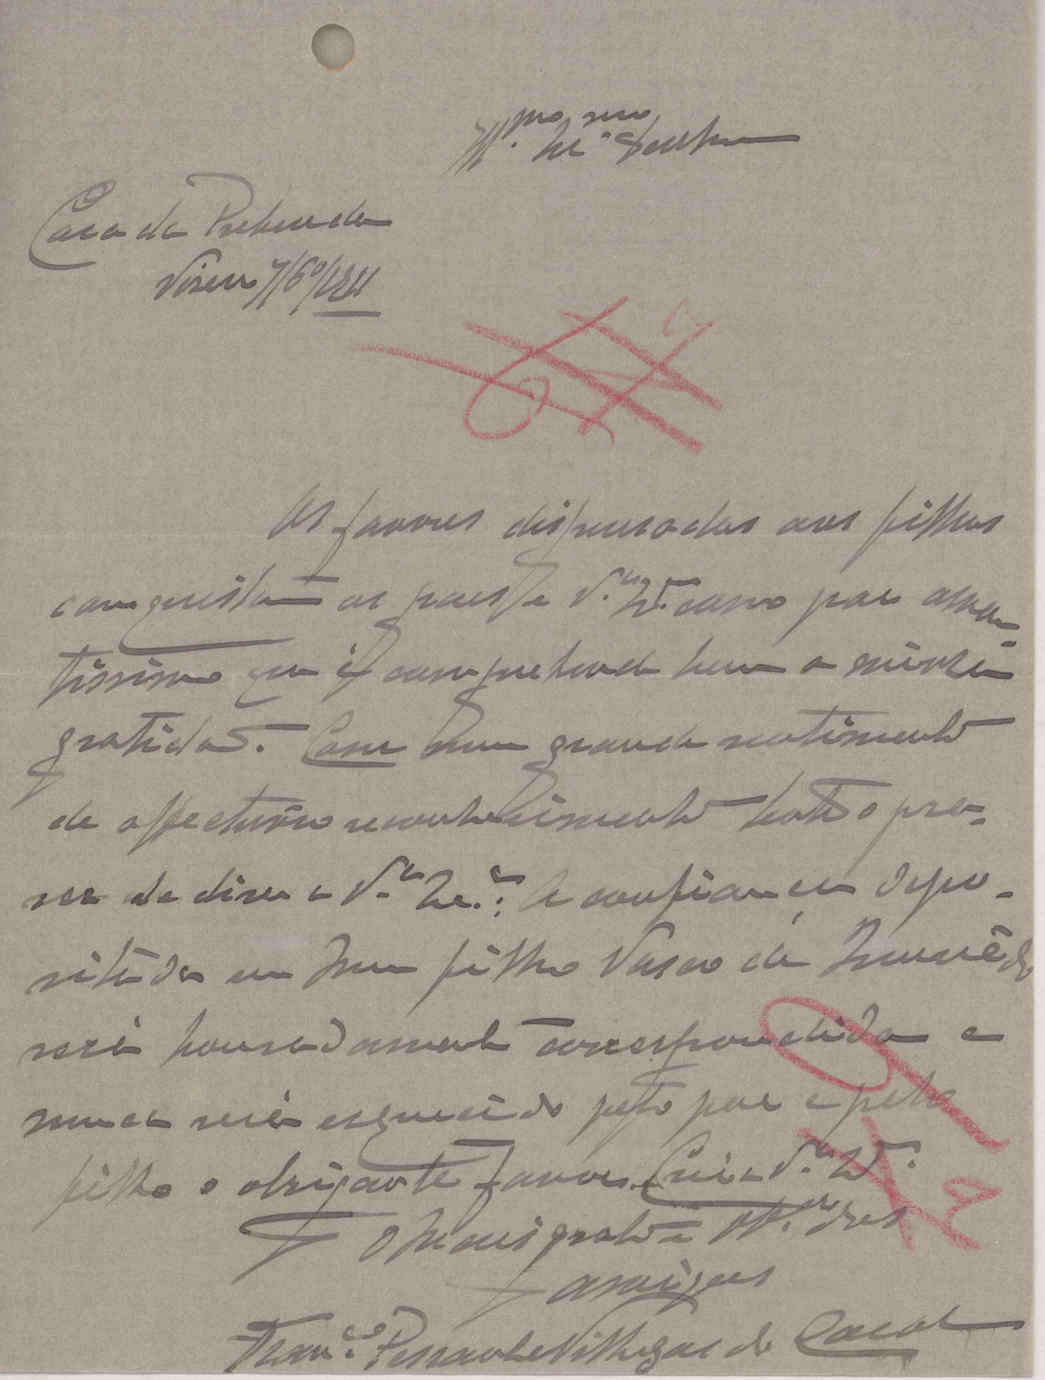 Ill.mo Ex.mo Senhor
Casa da Prebenda
Viseu 7/6º/1911
Os favores dispensados aos filhos
conquistam os paes. Se V.ª Ex.ª como pae aman-
tissimo que é comprehende bem a minha
gratidão. Com um grande sentimento
de affectuoso reconhecimento tenho o pra-
ser de dizer a V.ª Ex.ª: A confiança depo-
sitada em meu filho Vasco de
será honradamente correspondida e
nunca será esquecido pelo pae e pelo
filho o obrigante favor. Creia V.ª Ex.ª
O mais grato
amigos
Fran.co Perfeito de Villegas do Casal